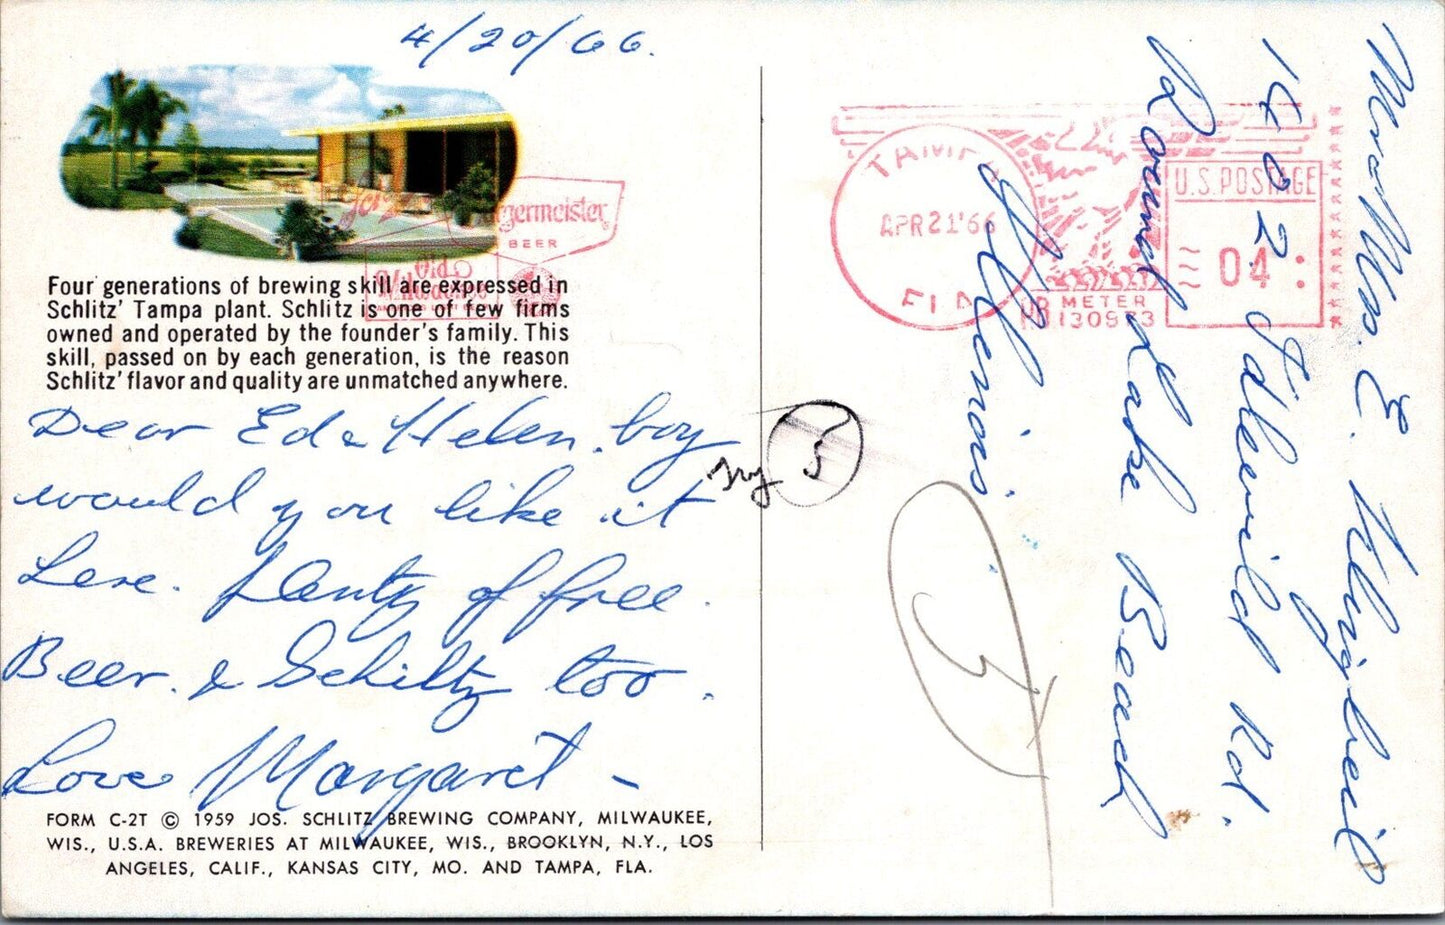 4/20/66.
Jägermeister
BEER
Old
Milwaukee
Four generations of brewing skill are expressed in
Schlitz' Tampa plant. Schlitz is one of few firms
owned and operated by the founder's family. This
skill, passed on by each generation, is the reason
Schlitz' flavor and quality are unmatched anywhere.
Dear Ed & Helen. boy
would you like it
Here. Plenty of free.
Beer. & Schiltz too.
Love Margaret -
FORM C-2T © 1959 JOS. SCHLITZ BREWING COMPANY, MILWAUKEE,
WIS., U.S.A. BREWERIES AT MILWAUKEE, WIS., BROOKLYN, N.Y., LOS
ANGELES, CALIF., KANSAS CITY, MO. AND TAMPA, FLA.
try 5
TAMPA
APR 21 '66
FLA
U.S. POSTAGE
04
PB METER
130973
Mr & Mrs. E. Klingbeil
1402 Idlewild Rd.
Round Lake Beach
Illinois.
5